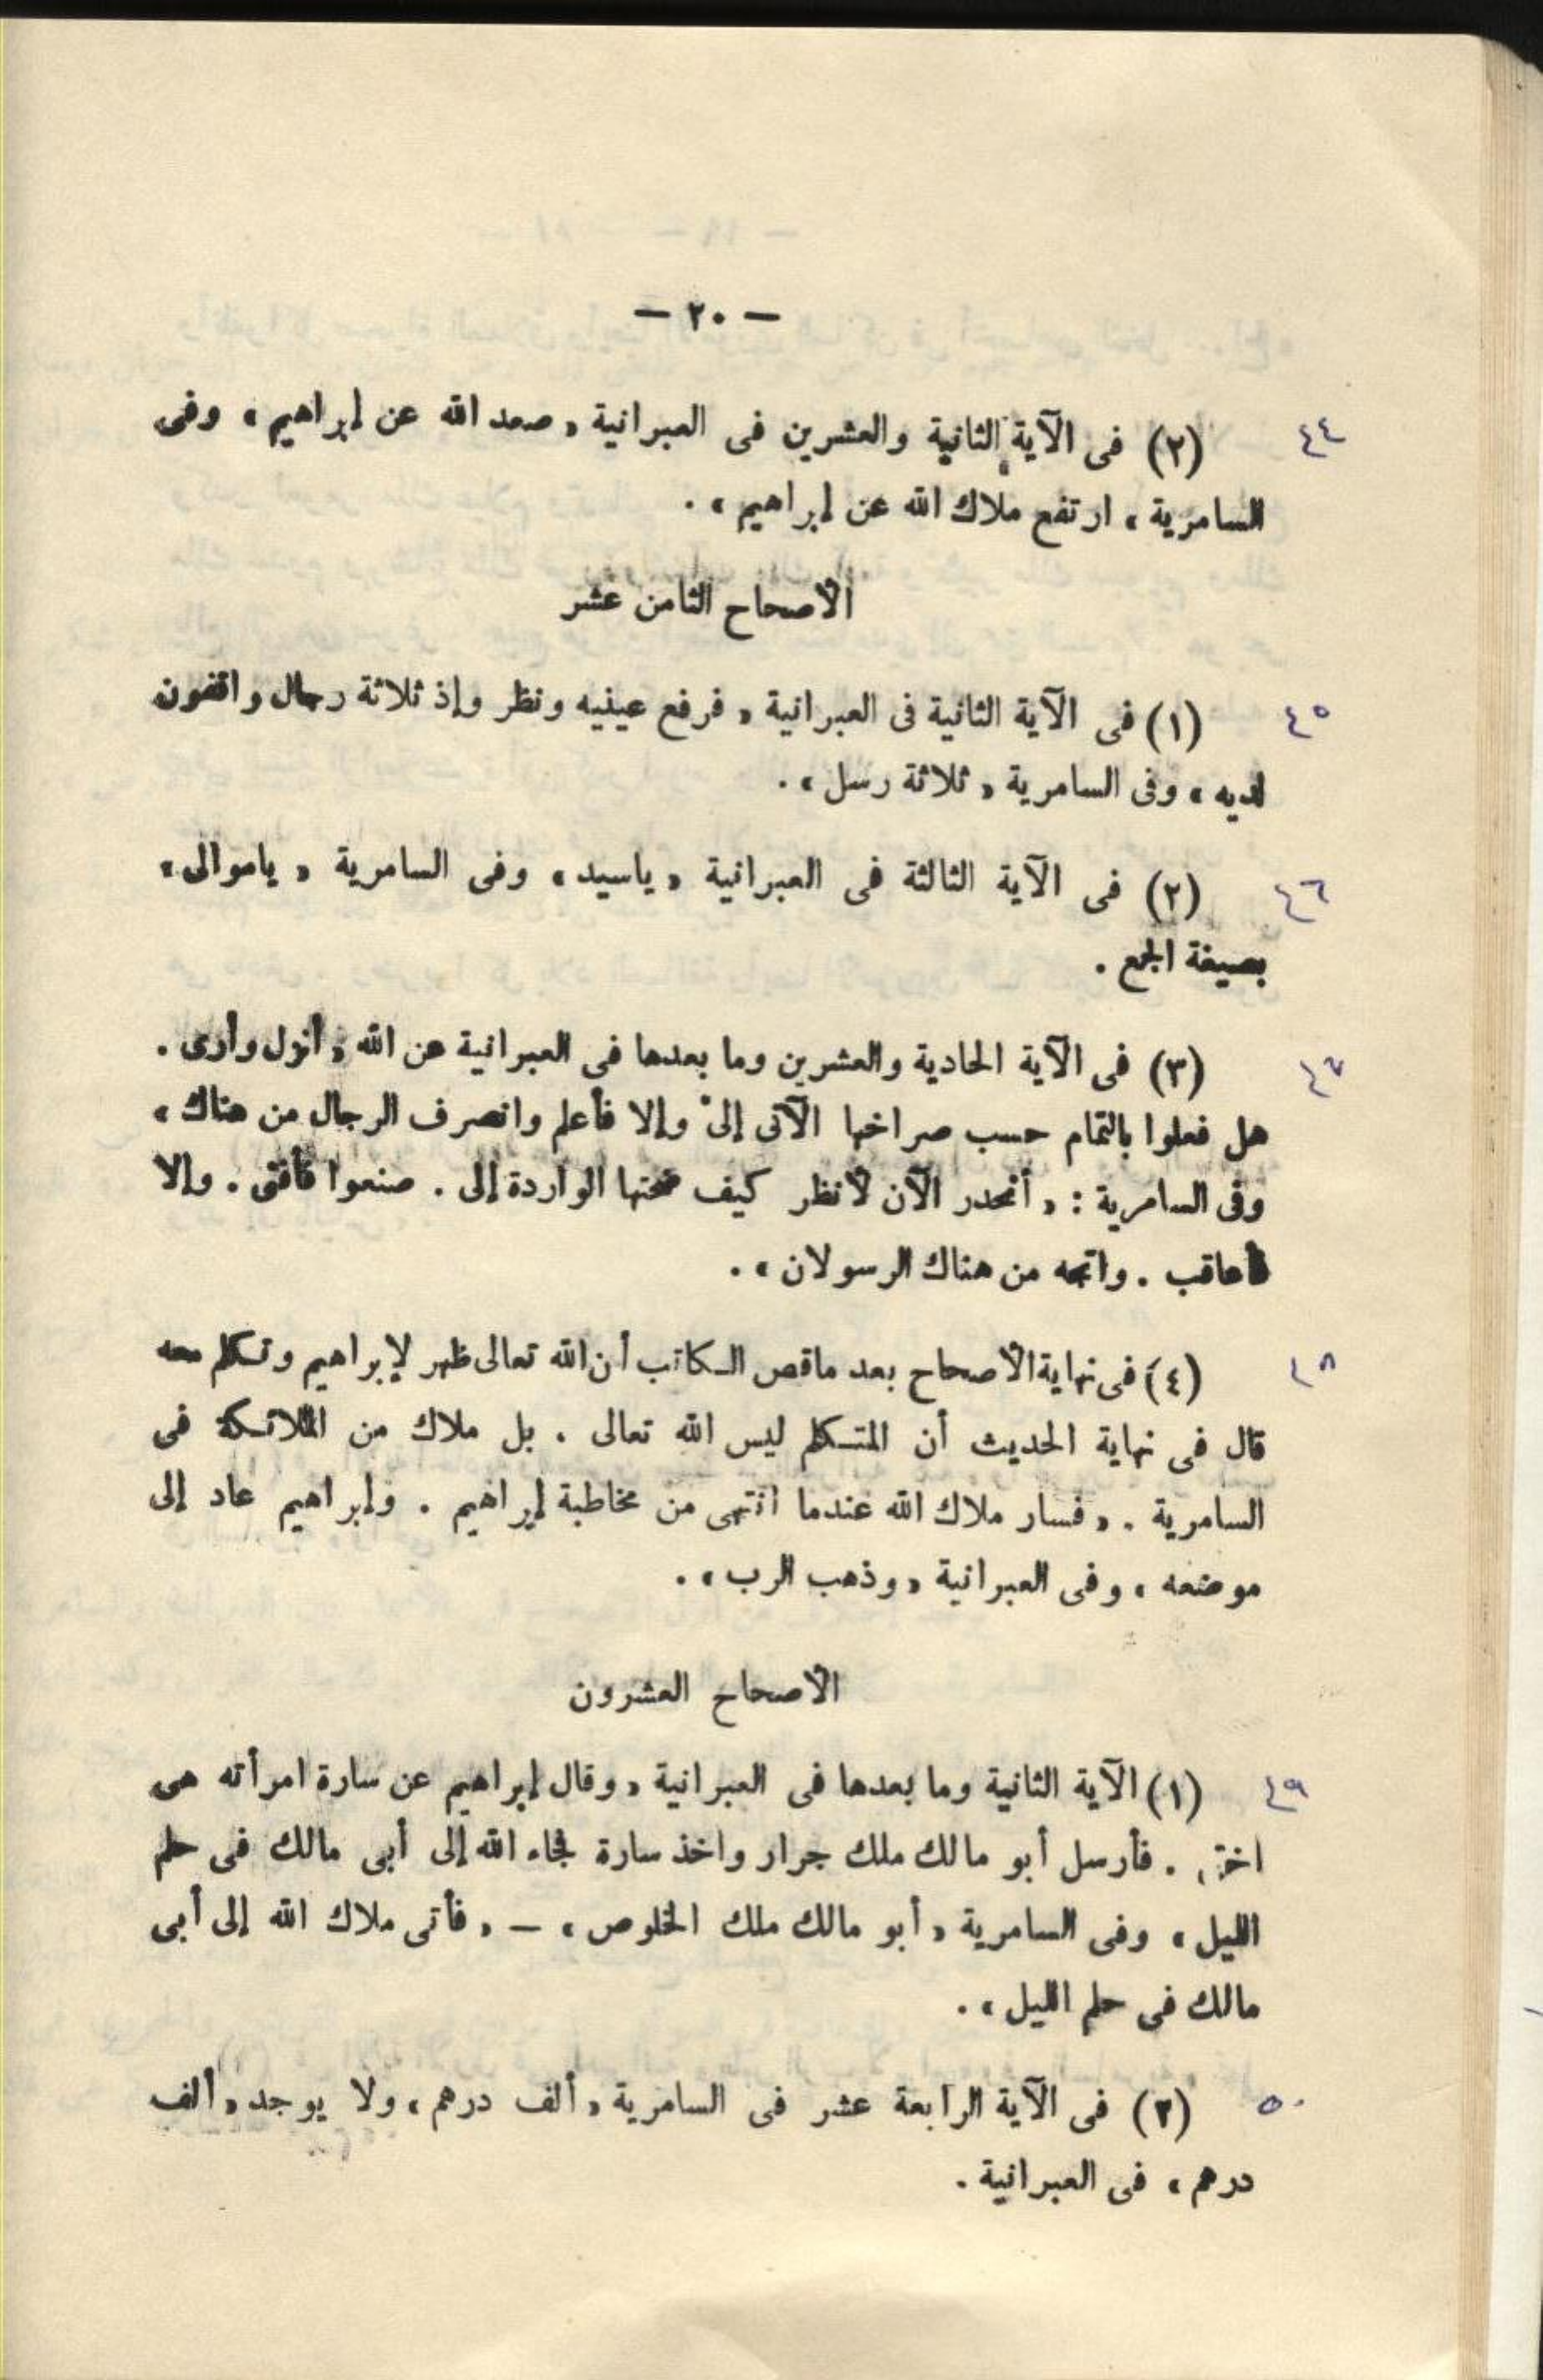 — ٢٠ —
٤٤ (٢) فى الآية الثانية والعشرين فى العبرانية « صعد الله عن إبراهيم » وفى
السامرية « ارتفع ملاك الله عن إبراهيم » .
الأصحاح الثامن عشر
٤٥ (١) فى الآية الثانية فى العبرانية « فرفع عينيه ونظر وإذ ثلاثة رجال واقفون
لديه » وفى السامرية « ثلاثة رسل » .
٤٦ (٢) فى الآية الثالثة فى العبرانية « ياسيد » وفى السامرية « ياموالى »
بصيغة الجمع .
٤٧ (٣) فى الآية الحادية والعشرين وما بعدها فى العبرانية عن الله « أنزل وأرى .
هل فعلوا بالتمام حسب صراخها الآتى إلى وإلا فأعلم وانصرف الرجال من هناك »
وفى السامرية : « أنحدر الآن لأنظر كيف ضجتها الواردة إلى . صنعوا فأفنى . وإلا
فأعاقب . واتجه من هناك الرسولان » .
٤٨ (٤) فى نهاية الأصحاح بعد ماقص الكاتب أن الله تعالى ظهر لإبراهيم وتكلم معه
قال فى نهاية الحديث أن المتكلم ليس الله تعالى . بل ملاك من الملائكة فى
السامرية . « فسار ملاك الله عندما انتهى من مخاطبة إبراهيم . وإبراهيم عاد إلى
موضعه » وفى العبرانية « وذهب الرب » .
الأصحاح العشرون
٤٩ (١) الآية الثانية وما بعدها فى العبرانية « وقال إبراهيم عن سارة امرأته هى
اختى . فأرسل أبو مالك ملك جرار واخذ سارة فجاء الله إلى أبى مالك فى حلم
الليل » وفى السامرية « أبو مالك ملك الخلوص » — « فأتى ملاك الله إلى أبى
مالك فى حلم الليل » .
٥٠ (٢) فى الآية الرابعة عشر فى السامرية « ألف درهم » ولا يوجد « ألف
درهم » فى العبرانية .